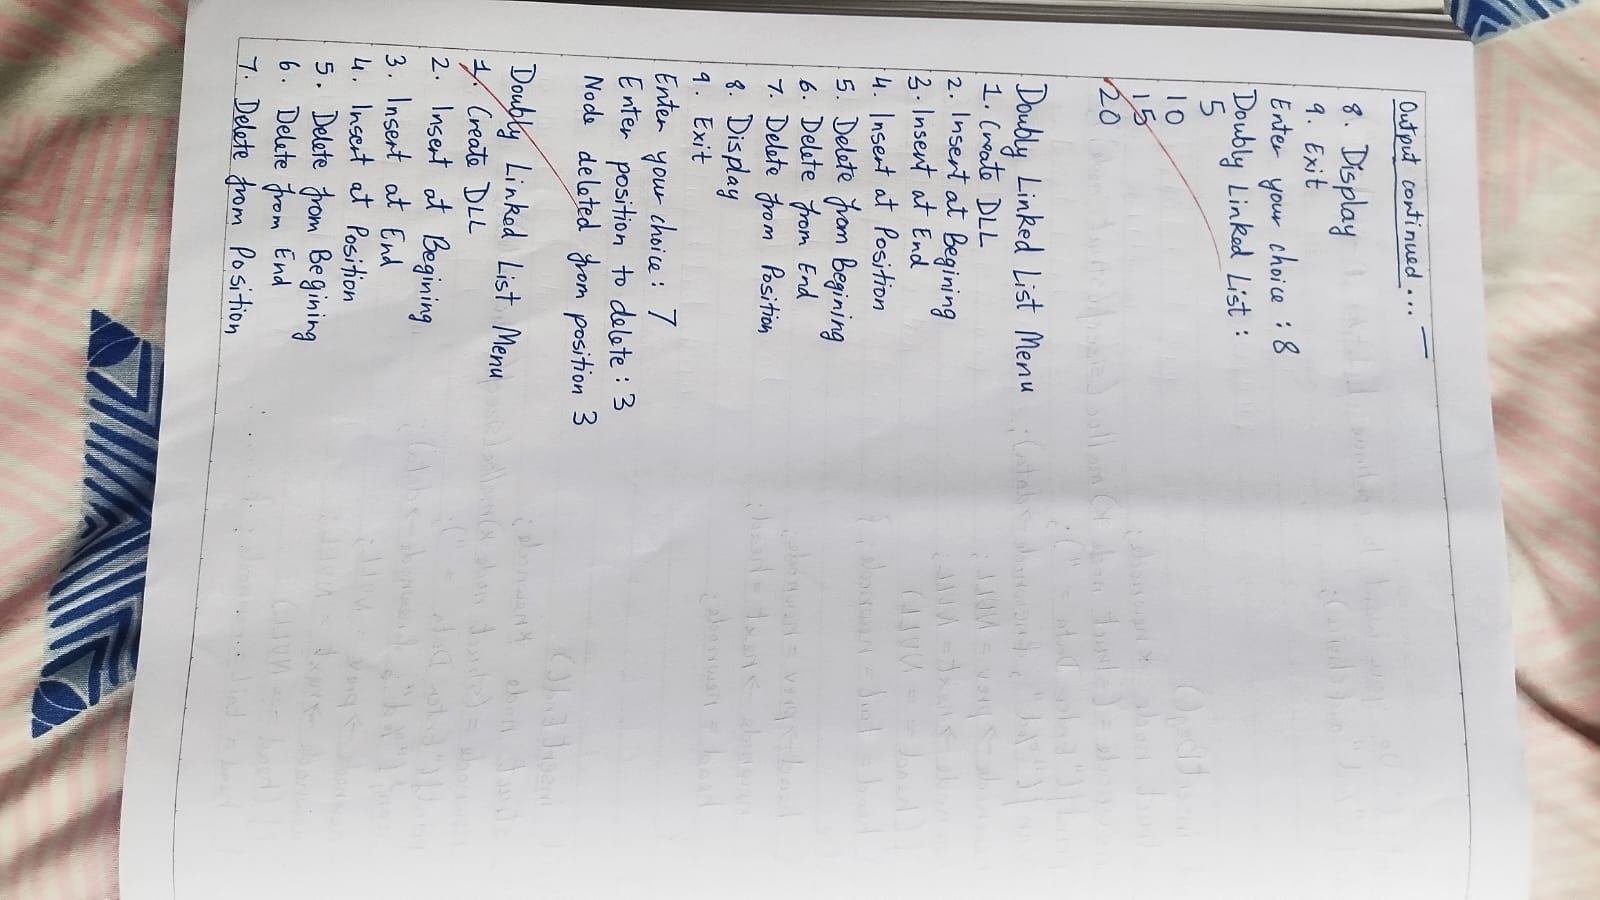 Output continued...
8. Display
9. Exit
Enter your choice : 8
Doubly Linked List :
5
10
15
20
Doubly Linked List Menu
1. Create DLL
2. Insert at Begining
3. Insert at End
4. Insert at Position
5. Delete from Begining
6. Delete from End
7. Delete from Position
8. Display
9. Exit
Enter your choice : 7
Enter position to delete : 3
Node deleted from position 3
Doubly Linked List Menu
1. Create DLL
2. Insert at Begining
3. Insert at End
4. Insert at Position
5. Delete from Begining
6. Delete from End
7. Delete from Position